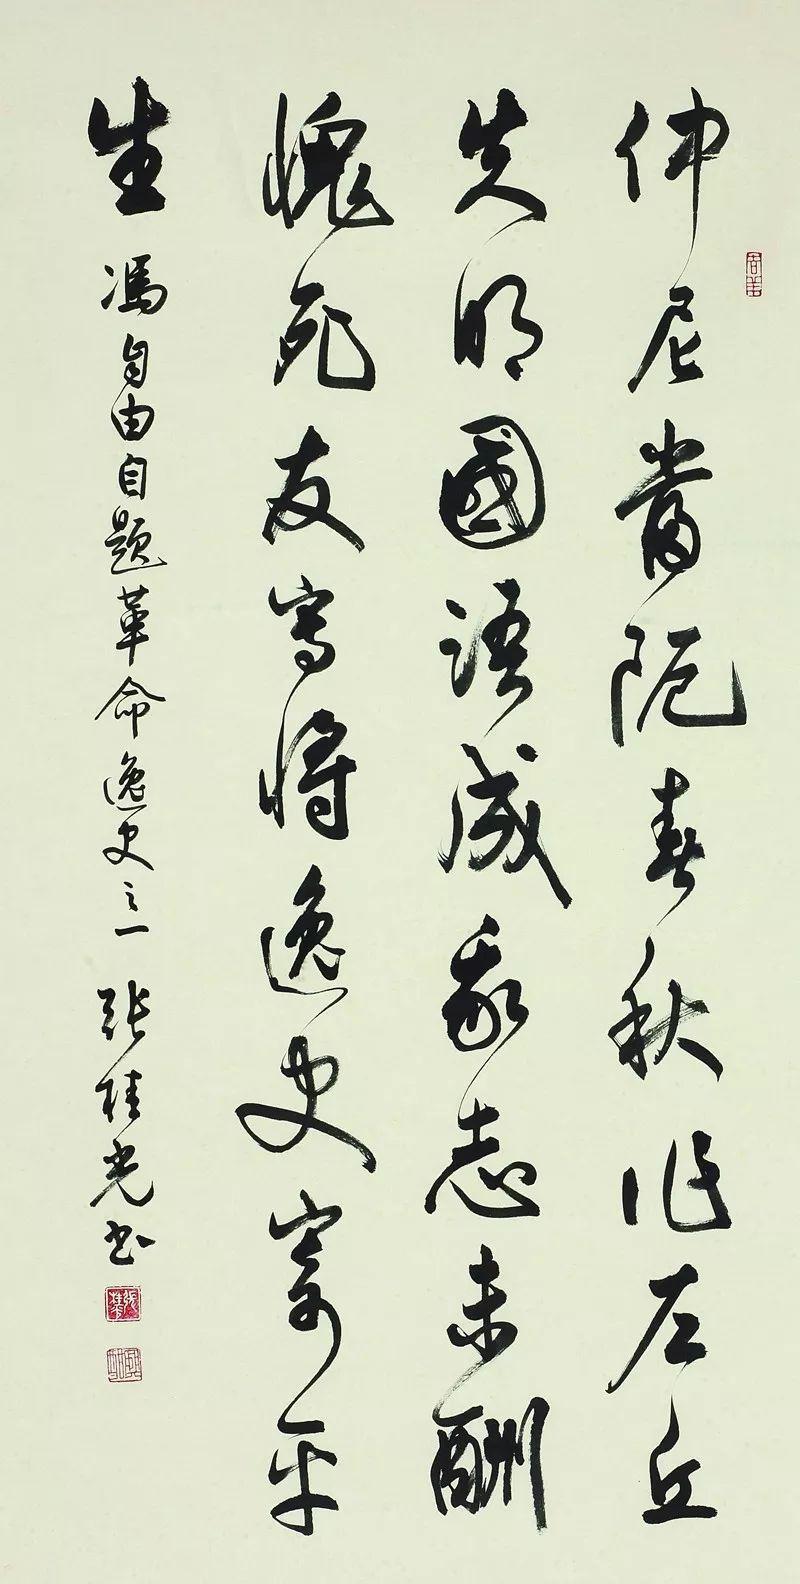 仲尼嘗阨春秋作左丘
失明國語成我志未酬
愧死友寫將逸史寄平
生
馮自由自題革命逸史之一
張桂光書